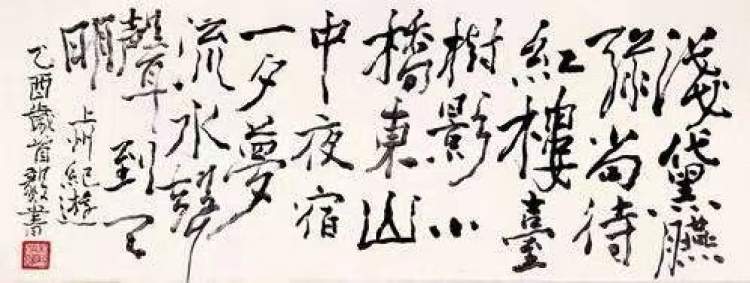 淺黛臙
尚待
紅樓臺
樹影小
橋東山
中夜宿
一夕夢
流水聲
聲到天
明
上州紀遊
乙酉歲首毅書